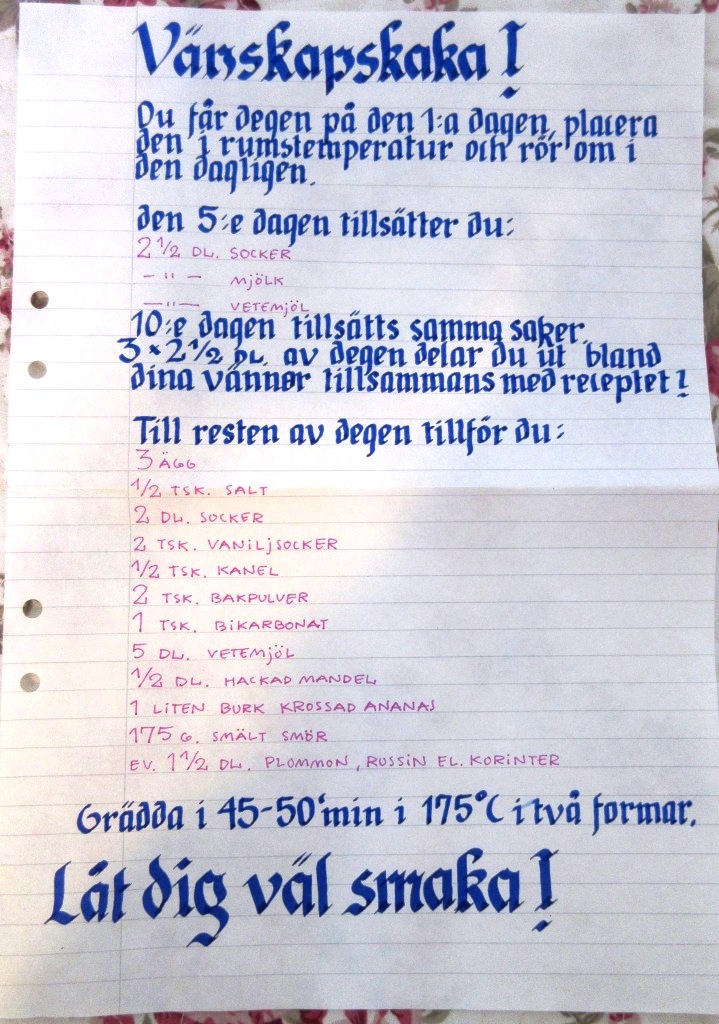 Vänskapskaka!
Du får degen på den 1:a dagen, placera
den i rumstemperatur och rör om i
den dagligen.
den 5:e dagen tillsätter du:
2 1/2 DL. SOCKER
— " — MJÖLK
— " — VETEMJÖL
10:e dagen tillsätts samma saker.
3 × 2 1/2 DL. av degen delar du ut bland
dina vänner tillsammans med receptet!
Till resten av degen tillför du:
3 ÄGG
1/2 TSK. SALT
2 DL. SOCKER
2 TSK. VANILJSOCKER
1/2 TSK. KANEL
2 TSK. BAKPULVER
1 TSK. BIKARBONAT
5 DL. VETEMJÖL
1/2 DL. HACKAD MANDEL
1 LITEN BURK KROSSAD ANANAS
175 G. SMÄLT SMÖR
EV. 1 1/2 DL. PLOMMON, RUSSIN EL. KORINTER
Grädda i 45-50 min i 175°C i två formar.
Låt dig väl smaka!